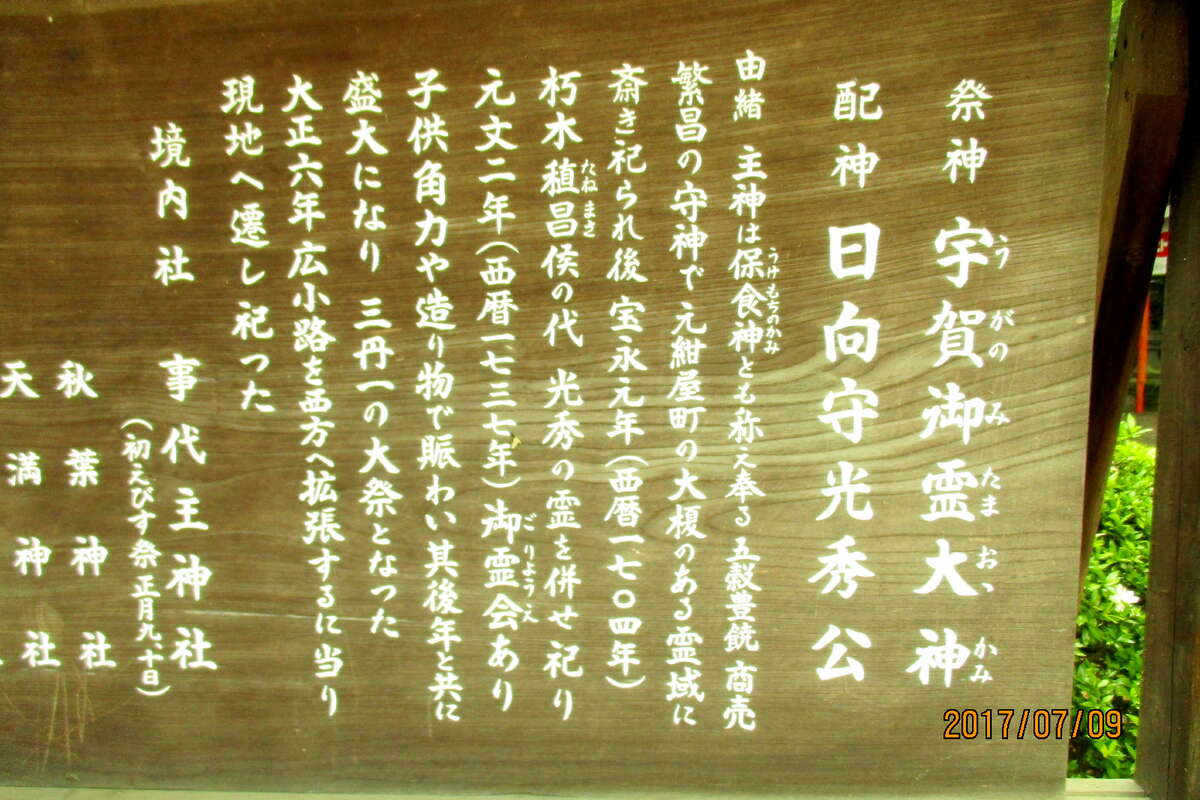 祭神 宇賀御霊大神
うがのみたまおゝかみ
配神 日向守光秀公
由緒 主神は保食神とも称え奉る 五穀豊饒 商売
うけもちのかみ
繁昌の守神で元紺屋町の大榎のある霊域に
斎き祀られ後 宝永元年(西暦一七〇四年)
朽木稙昌侯の代 光秀の霊を併せ祀り
たねまさ
元文二年(西暦一七三七年)御霊会あり
ごりようえ
子供角力や造り物で賑わい其後年と共に
盛大になり 三丹一の大祭となった
大正六年広小路を西方へ拡張するに当り
現地へ遷し祀つた
境内社 事代主神社
(初えびす祭 正月九、十日)
秋葉神社
天満神社
2017/07/09